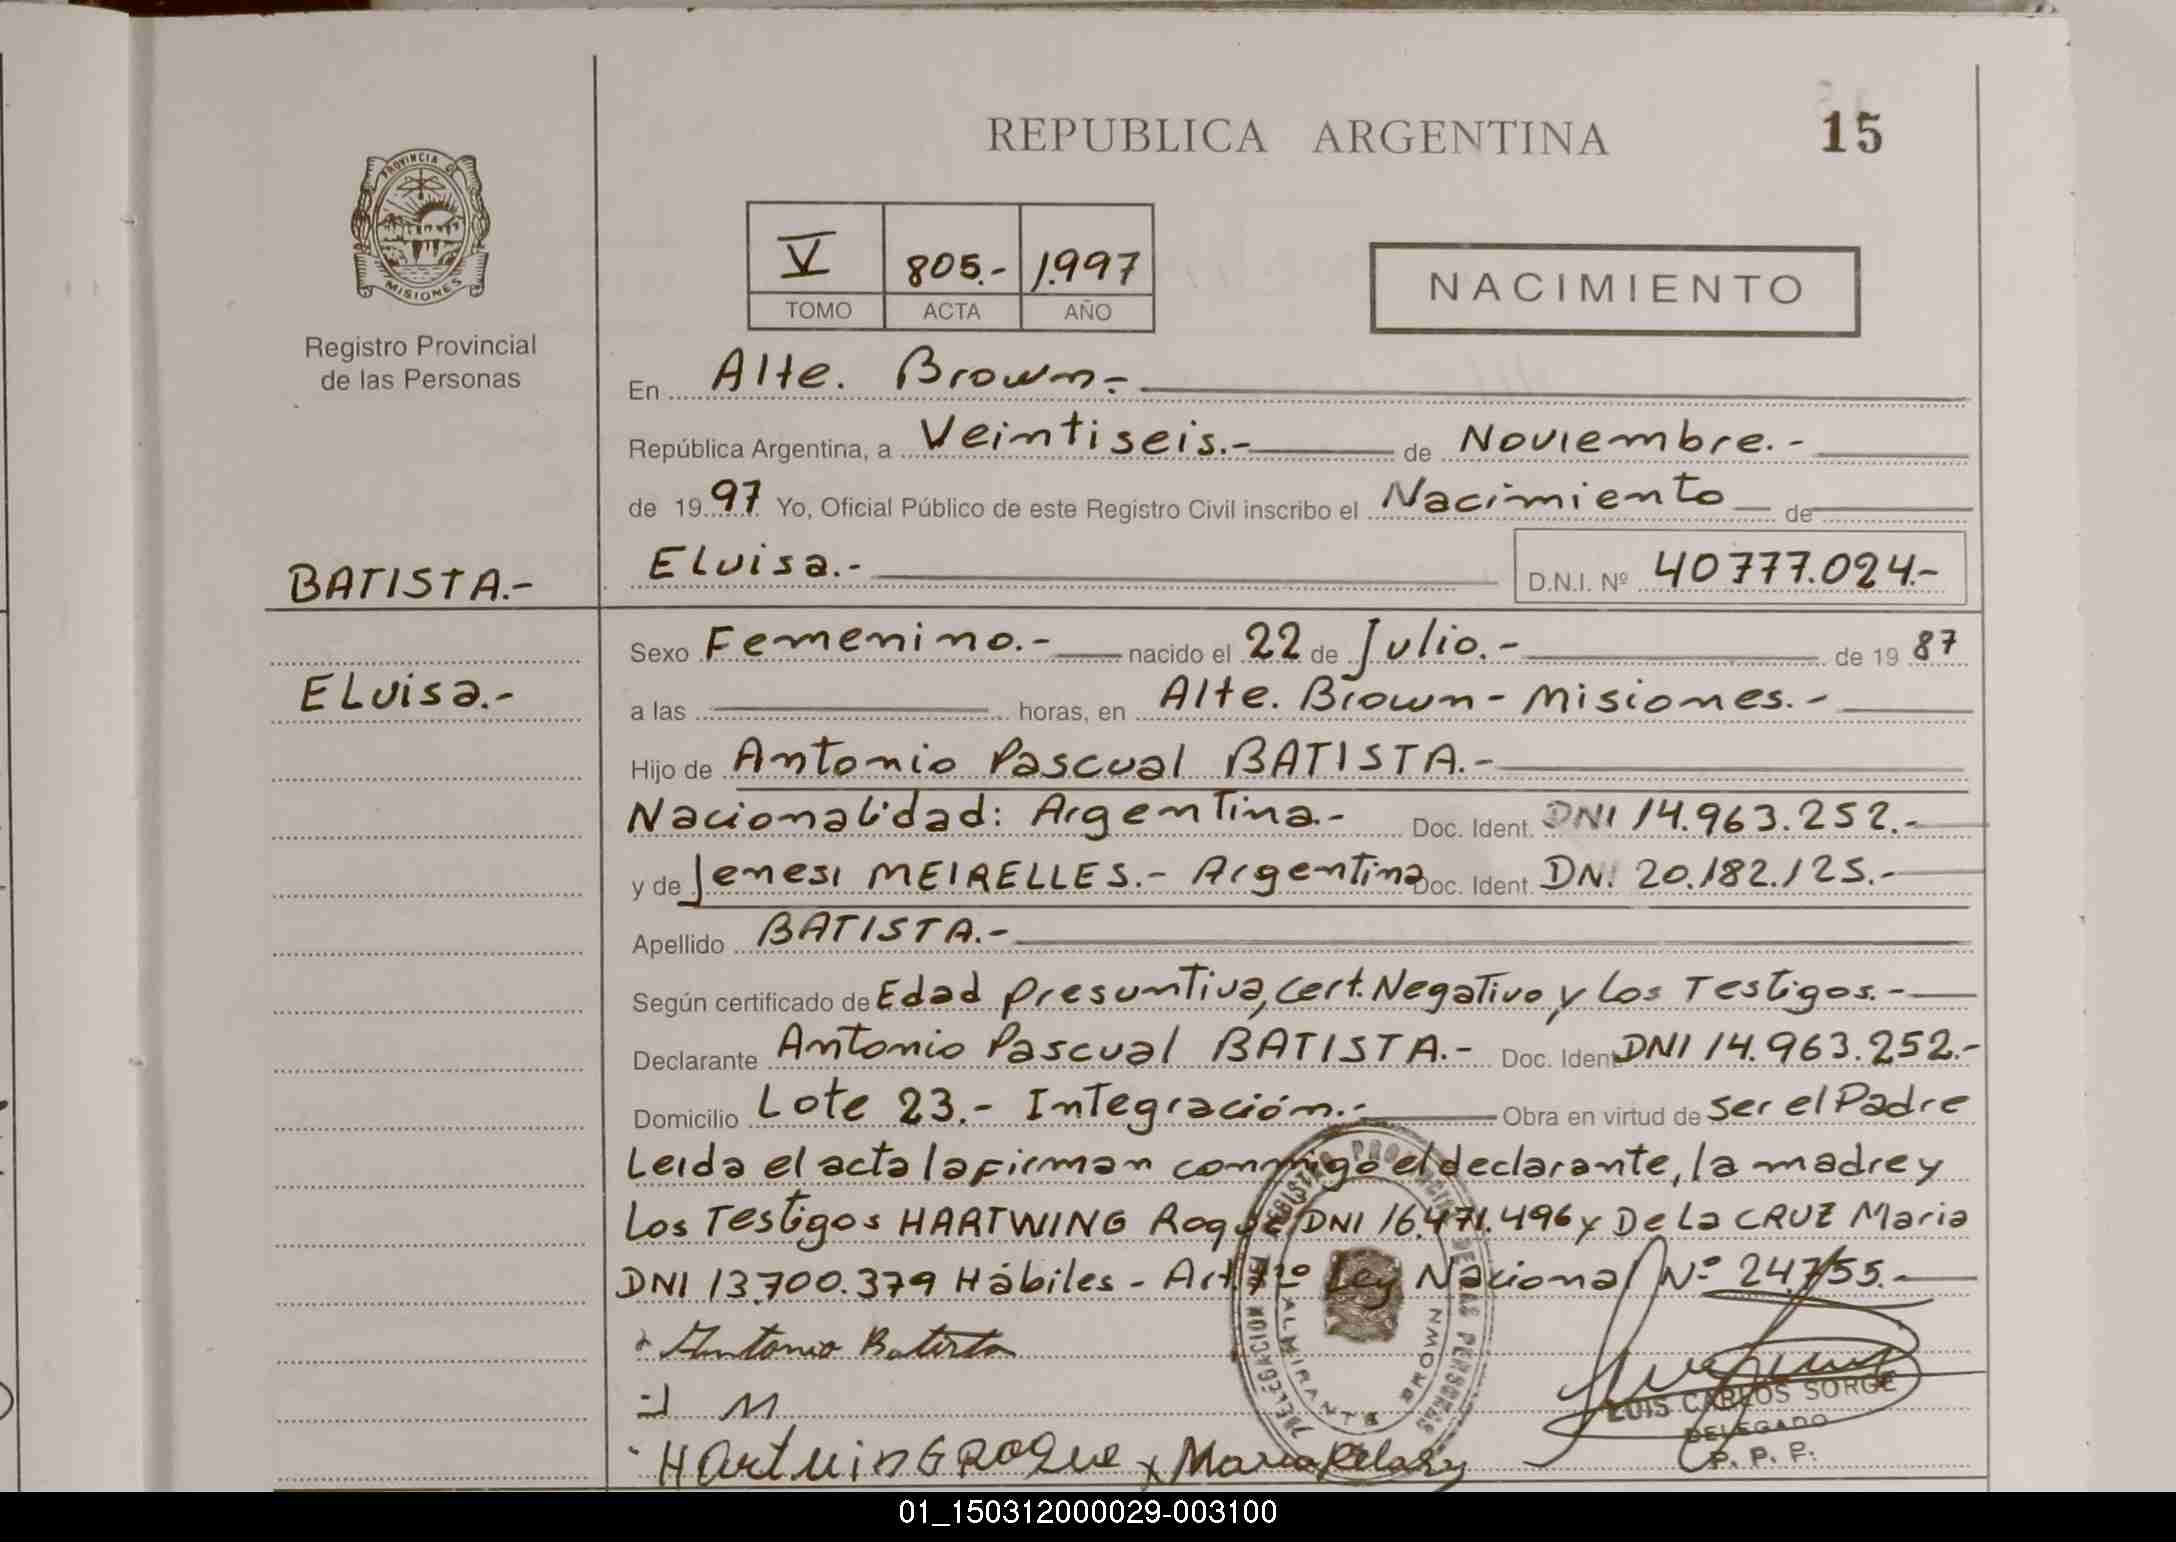 REPUBLICA ARGENTINA
15
PROVINCIA DE
MISIONES
Registro Provincial
de las Personas
V 805.- 1.997
TOMO ACTA AÑO
NACIMIENTO
En Alte. Brown.-
República Argentina, a Veintiseis.- de Noviembre.-
de 19 97 Yo, Oficial Público de este Registro Civil inscribo el Nacimiento de
BATISTA.-
Eluisa.- D.N.I. Nº 40777.024.-
Sexo Femenino.- nacido el 22 de Julio.- de 19 87
ELuisa.-
a las horas, en Alte. Brown - Misiones.-
Hijo de Antonio Pascual BATISTA.-
Nacionalidad: Argentina.- Doc. Ident. DNI 14.963.252.-
y de Jenesi MEIRELLES.- Argentina Doc. Ident. DNI 20.182.125.-
Apellido BATISTA.-
Según certificado de Edad presuntiva, cert. Negativo y los Testigos.-
Declarante Antonio Pascual BATISTA.- Doc. Ident DNI 14.963.252.-
Domicilio Lote 23.- Integración.- Obra en virtud de ser el Padre
Leida el acta la firman conmigo el declarante, la madre y
Los Testigos HARTWING Roque DNI 16.471.496 y De La CRUZ Maria
DNI 13.700.379 Hábiles - Art. Ley Nacional Nº 24.755.-
Antonio Batista
J M
HArtwinG ROQue x Maria
REGISTRO PROVINCIAL DE LAS PERSONAS
DELEGACION
ALMIRANTE BROWN
LUIS CARLOS SORGE
DELEGADO
R. P. P.
01_150312000029-003100